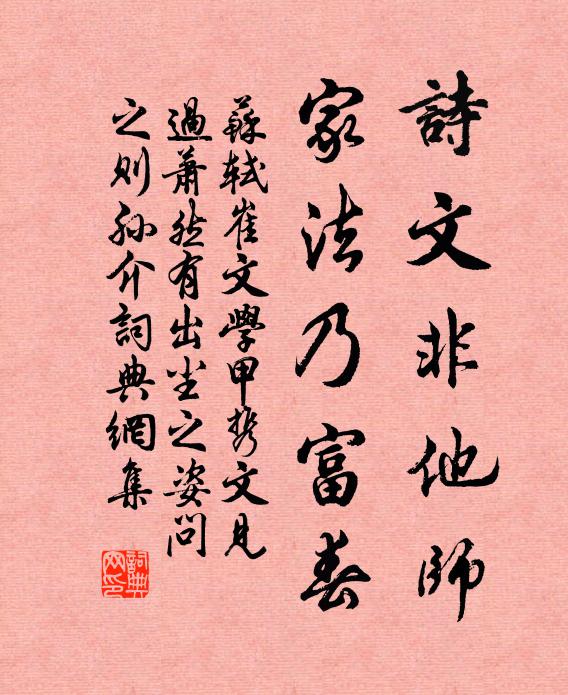 詩文非他師
家法乃富春
蘇軾崔文學甲攜文見
過蕭然有出塵之姿問
之則孫介詞典網集
詞典網印